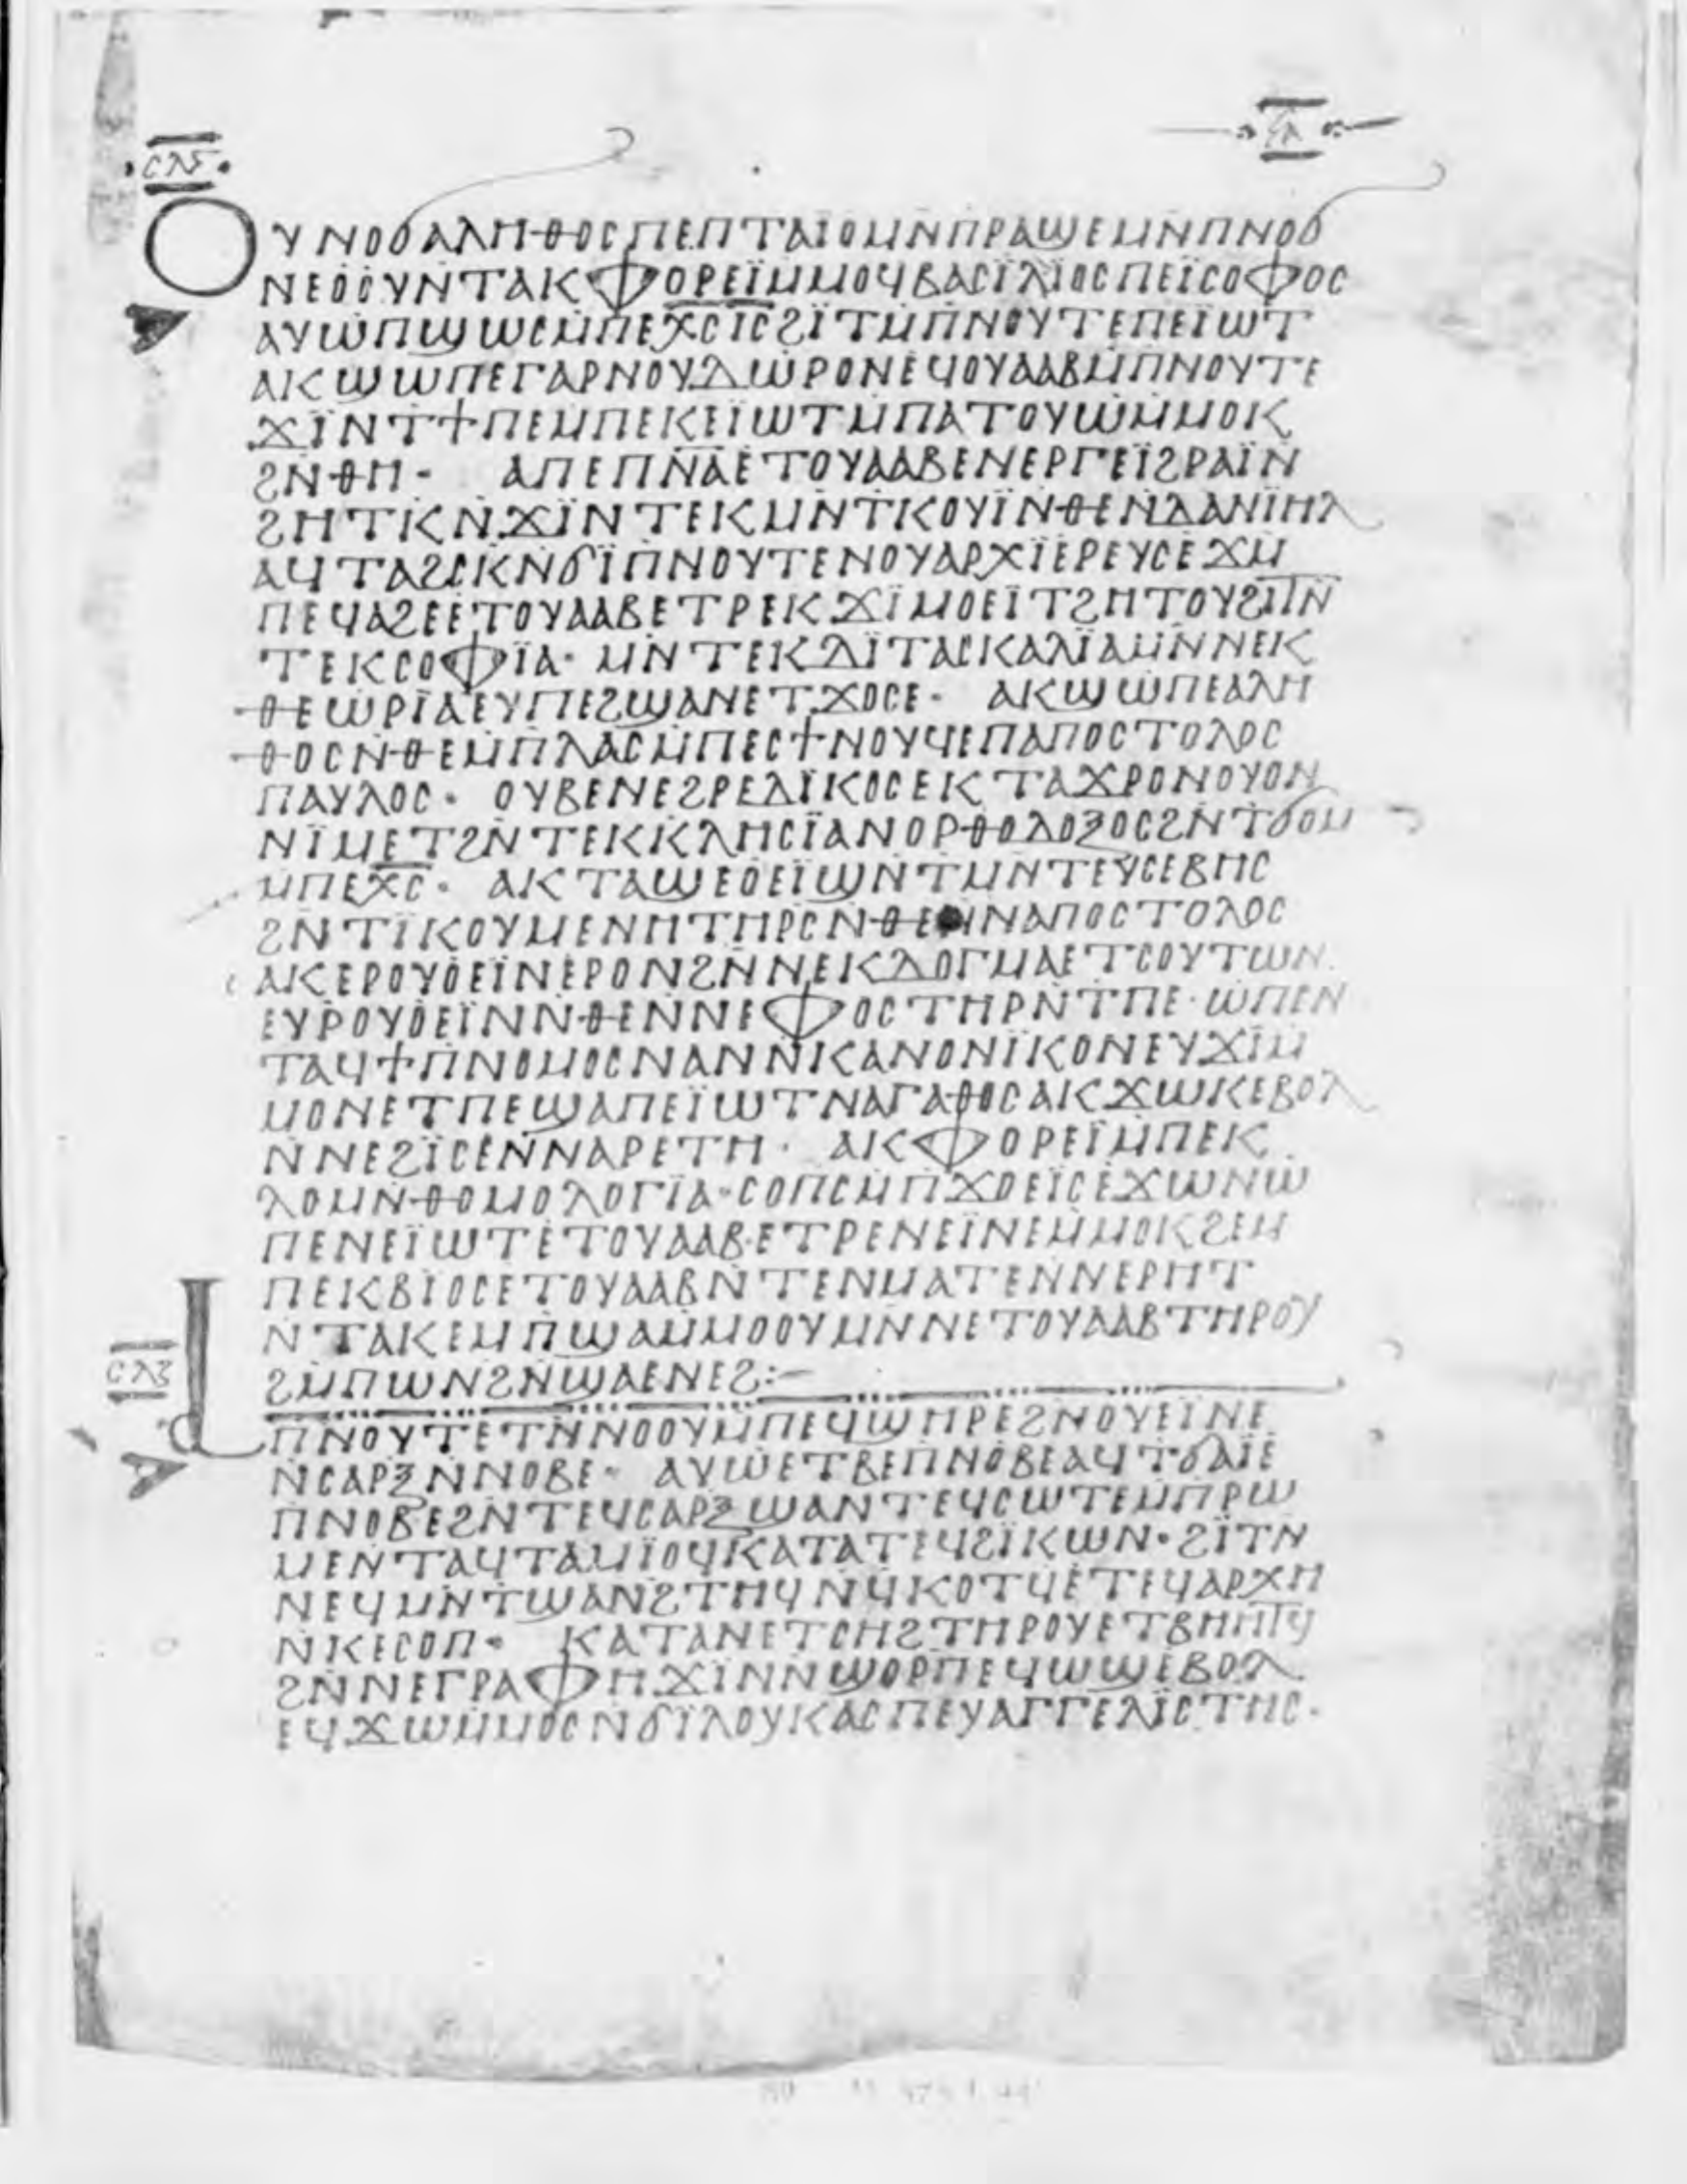 ⲥⲗⲋ
ⲟⲩⲛⲟϭ ⲁⲗⲏⲑⲟⲥ ⲡⲉ ⲡⲧⲁⲓⲟ ⲙⲛ ⲡⲣⲁϣⲉ ⲙⲛ ⲡⲛⲟϭ
ⲛⲉⲟⲟⲩ ⲛⲧⲁⲕⲫⲟⲣⲉⲓ̈ ⲙⲙⲟϥ ⲃⲁⲥⲓ̈ⲗⲓⲟⲥ ⲡⲉⲓ̈ⲥⲟⲫⲟⲥ
ⲁⲩⲱ ⲡϣⲱⲥ ⲙⲡⲉⲭ̅ⲥ̅ ⲓ̅ⲥ̅ ϩⲓ̈ⲧⲙ ⲡⲛⲟⲩⲧⲉ ⲡⲉⲓ̈ⲱⲧ
ⲁⲕϣⲱⲡⲉ ⲅⲁⲣ ⲛⲟⲩⲇⲱⲣⲟⲛ ⲉϥⲟⲩⲁⲁⲃ ⲙⲡⲛⲟⲩⲧⲉ
ϫⲓ̈ⲛ ⲧϯⲡⲉ ⲙⲡⲉⲕⲉⲓ̈ⲱⲧ ⲙⲡⲁⲧⲟⲩⲱ ⲙⲙⲟⲕ
ϩⲛ ⲑⲏ· ⲁⲡⲉⲡ̅ⲛ̅ⲁ̅ ⲉⲧⲟⲩⲁⲁⲃ ⲉⲛⲉⲣⲅⲉⲓ̈ ϩⲣⲁⲓ̈ ⲛ
ϩⲏⲧⲕ ⲛϫⲓ̈ⲛ ⲧⲉⲕⲙⲛⲧⲕⲟⲩⲓ̈ ⲛⲑⲉ ⲛⲇⲁⲛⲓ̈ⲏⲗ
ⲁϥⲧⲁϩⲥⲕ ⲛϭⲓ̈ ⲡⲛⲟⲩⲧⲉ ⲛⲟⲩⲁⲣⲭⲓ̈ⲉⲣⲉⲩⲥ ⲉϫⲙ
ⲡⲉϥⲁϩⲉ ⲉⲧⲟⲩⲁⲁⲃ ⲉⲧⲣⲉⲕϫⲓ̈ⲙⲟⲉⲓ̈ⲧ ϩⲏⲧⲟⲩ ϩⲓⲧⲛ̈
ⲧⲉⲕⲥⲟⲫⲓ̈ⲁ· ⲙⲛ ⲧⲉⲕⲇⲓ̈ⲧⲁⲥⲕⲁⲗⲓ̈ⲁ ⲙⲛ ⲛⲉⲕ
ⲑⲉⲱⲣⲓ̈ⲁ ⲉⲩⲡⲉϩ ϣⲁ ⲛⲉⲧϫⲟⲥⲉ· ⲁⲕϣⲱⲡⲉ ⲁⲗⲏ
ⲑⲟⲥ ⲛⲑⲉ ⲙⲡⲗⲁⲥ ⲙⲡⲉⲥϯⲛⲟⲩϥⲉ ⲡⲁⲡⲟⲥⲧⲟⲗⲟⲥ
ⲡⲁⲩⲗⲟⲥ· ⲟⲩⲃⲉ ⲛⲉϩⲣⲉⲇⲓ̈ⲕⲟⲥ ⲉⲕⲧⲁϫⲣⲟ ⲛⲟⲩⲟⲛ
ⲛⲓ̈ⲙ ⲉⲧϩⲛ ⲧⲉⲕⲕⲗⲏⲥⲓ̈ⲁ ⲛⲟⲣⲑⲟⲇⲟⲝⲟⲥ ϩⲛ ⲧϭⲟⲙ
ⲙⲡⲉⲭ̅ⲥ̅· ⲁⲕⲧⲁϣⲉⲟⲉⲓ̈ϣ ⲛⲧⲙⲛⲧⲉⲩⲥⲉⲃⲏⲥ
ϩⲛ ⲧⲓ̈ⲕⲟⲩⲙⲉⲛⲏ ⲧⲏⲣⲥ ⲛⲑⲉ ⲛⲛⲁⲡⲟⲥⲧⲟⲗⲟⲥ
ⲁⲕⲉⲣⲟⲩⲟⲉⲓ̈ⲛ ⲉⲣⲟⲛ ϩⲛ ⲛⲉⲕⲇⲟⲅⲙⲁ ⲉⲧⲥⲟⲩⲧⲱⲛ
ⲉⲩⲣⲟⲩⲟⲉⲓ̈ⲛ ⲛⲑⲉ ⲛⲛⲉⲫⲟⲥⲧⲏⲣ ⲛⲧⲡⲉ· ⲱ ⲡⲉⲛ
ⲧⲁϥϯ ⲡⲛⲟⲙⲟⲥ ⲛⲁⲛ ⲛⲕⲁⲛⲟⲛⲓ̈ⲕⲟⲛ ⲉⲩϫⲓ̈ⲙ
ⲙⲟⲛ ⲉⲧⲡⲉ ϣⲁ ⲡⲉⲓ̈ⲱⲧ ⲛⲁⲅⲁⲑⲟⲥ ⲁⲕϫⲱⲕ ⲉⲃⲟⲗ
ⲛⲛⲉϩⲓ̈ⲥⲉ ⲛⲛⲁⲣⲉⲧⲏ· ⲁⲕⲫⲟⲣⲉⲓ̈ ⲙⲡⲉⲕ
ⲗⲟⲙ ⲛⲑⲟⲙⲟⲗⲟⲅⲓ̈ⲁ· ⲥⲟⲡⲥ ⲙⲡϫⲟⲉⲓ̈ⲥ ⲉϫⲱⲛ ⲱ
ⲡⲉⲛⲉⲓ̈ⲱⲧ ⲉⲧⲟⲩⲁⲁⲃ ⲉⲧⲣⲉⲛⲉⲓ̈ⲛⲉ ⲙⲙⲟⲕ ϩⲉⲙ
ⲡⲉⲕⲃⲓⲟⲥ ⲉⲧⲟⲩⲁⲁⲃ ⲛⲧⲉⲛⲙⲁⲧⲉ ⲛⲛⲉⲣⲏⲧ
ⲛⲧⲁⲕⲉⲙⲡϣⲁ ⲙⲙⲟⲟⲩ ⲙⲛ ⲛⲉⲧⲟⲩⲁⲁⲃ ⲧⲏⲣⲟⲩ
ϩⲙ ⲡⲱⲛϩ ⲛϣⲁⲉⲛⲉϩ:–
ⲥⲗⲍ
ⲁ̀
ⲡⲛⲟⲩⲧⲉ ⲧⲛⲛⲟⲟⲩ ⲙⲡⲉϥϣⲏⲣⲉ ϩⲛ ⲟⲩⲉⲓ̈ⲛⲉ
ⲛⲥⲁⲣⲝ ⲛⲛⲟⲃⲉ· ⲁⲩⲱ ⲉⲧⲃⲉ ⲡⲛⲟⲃⲉ ⲁϥⲧϭⲁⲓ̈ⲉ
ⲡⲛⲟⲃⲉ ϩⲛ ⲧⲉϥⲥⲁⲣⲝ ϣⲁⲛⲧⲉϥⲥⲱⲧⲉ ⲙⲡⲣⲱ
ⲙⲉ ⲛⲧⲁϥⲧⲁⲙⲓ̈ⲟϥ ⲕⲁⲧⲁ ⲧⲉϥϩⲓ̈ⲕⲱⲛ· ϩⲓ̈ⲧⲛ
ⲛⲉϥⲙⲛⲧϣⲁⲛϩⲧⲏϥ ⲛϥⲕⲟⲧϥ ⲉⲧⲉϥⲁⲣⲭⲏ
ⲛⲕⲉⲥⲟⲡ· ⲕⲁⲧⲁ ⲛⲉⲧⲥⲏϩ ⲧⲏⲣⲟⲩ ⲉⲧⲃⲏⲏⲧϥ
ϩⲛ ⲛⲉⲅⲣⲁⲫⲏ ϫⲓ̈ⲛ ⲛϣⲟⲣⲡ ⲉϥⲱϣ ⲉⲃⲟⲗ
ⲉϥϫⲱ ⲙⲙⲟⲥ ⲛϭⲓ̈ ⲗⲟⲩⲕⲁⲥ ⲡⲉⲩⲁⲅⲅⲉⲗⲓ̈ⲥⲧⲏⲥ·